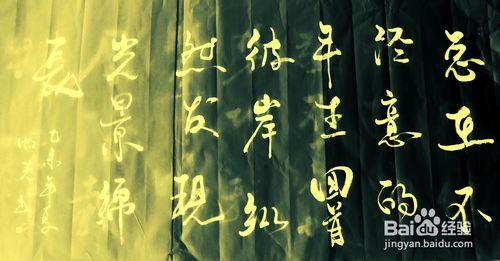 总在不
经意的
年生回首
彼岸纵
然发现
光景绵
长
乙未年夏
Bai du 经验
jingyan.baidu.com